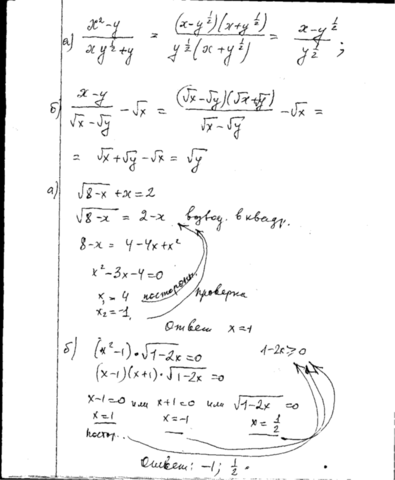 а) (x²-y)/(xy^½+y) = ((x-y^½)(x+y^½))/(y^½(x+y^½)) = (x-y^½)/y^½ ;
б) (x-y)/(√x-√y) - √x = ((√x-√y)(√x+√y))/(√x-√y) - √x =
= √x+√y-√x = √y
а) √(8-x) + x = 2
√(8-x) = 2-x возвод. в квадр.
8-x = 4-4x+x²
x²-3x-4=0
x₁=4 посторонн. проверка
x₂=-1
Ответ x=1
б) (x²-1)·√(1-2x)=0 1-2x⩾0
(x-1)(x+1)·√(1-2x)=0
x-1=0 или x+1=0 или √(1-2x)=0
x=1 x=-1 x=½
постор.
Ответ: -1; ½.